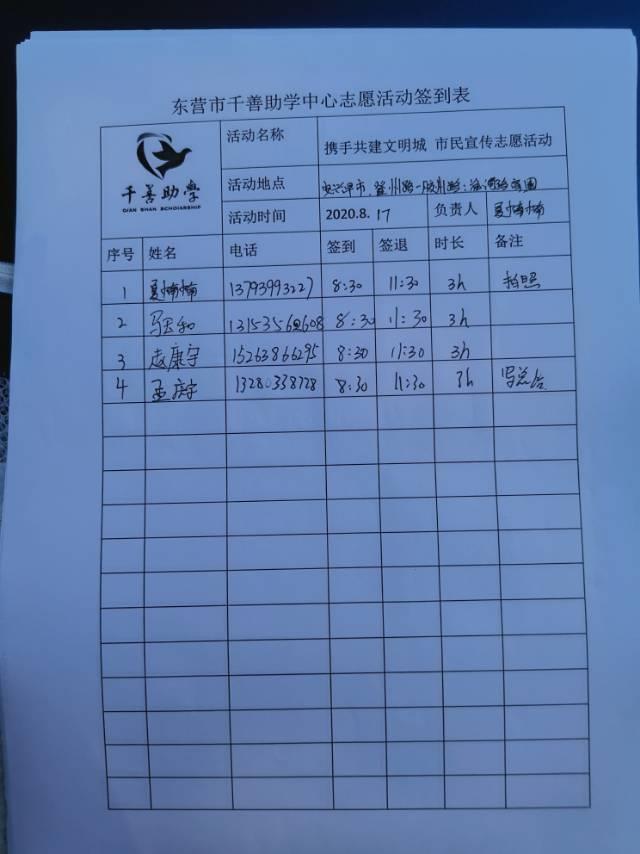 东营市千善助学中心志愿活动签到表
千善助学
QIAN SHAN SCHOLARSHIP
活动名称 携手共建文明城 市民宣传志愿活动
活动地点
活动时间 2020.8.17 负责人 夏楠楠
序号 姓名 电话 签到 签退 时长 备注
1 夏楠楠 13793993227 8:30 11:30 3h 拍照
2 1315356 608 8:30 11:30 3h
3 赵康宇 15263866295 8:30 11:30 3h
4 孟庆宇 13280338728 8:30 11:30 3h 写总结